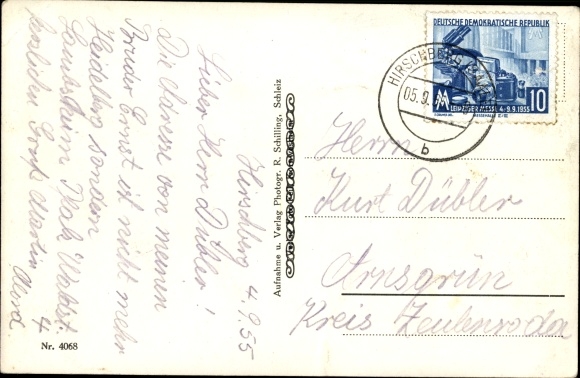 Hirschberg 4.9.55
Lieber Herr Dübler!
Die Adresse von meinem
Bruder Ernst ist nicht mehr
Heidelberg sondern
Lambsheim Pfalz Waldstr.
4
herzlichen Gruß Martin
Aufnahme u. Verlag Photogr. R. Schilling, Schleiz
Nr. 4068
DEUTSCHE DEMOKRATISCHE REPUBLIK
LEIPZIGER MESSE 4.-9.9.1955
10
HIRSCHBERG
05.9.
b
Herrn
Kurt Dübler
Arnsgrün
Kreis Zeulenroda